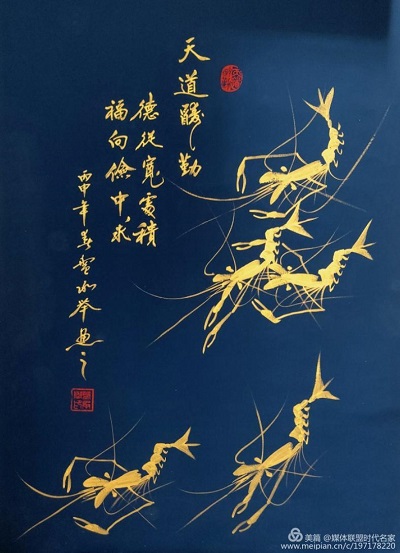 天道酬勤
德從寬處積
福向儉中求
丙申年
美篇 @媒体联盟时代名家
www.meipian.cn/c/197178220